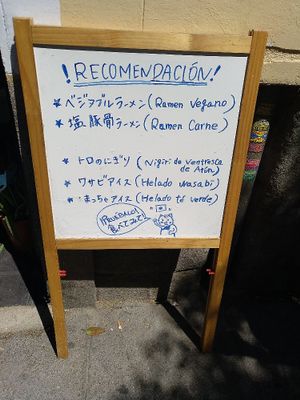 ¡RECOMENDACIÓN!
★ベジタブルラーメン(Ramen Vegano)
★塩豚骨ラーメン(Ramen Carne)
★トロのにぎり(Nigiri de ventresca de Atún)
★ワサビアイス(Helado wasabi)
★まっちゃアイス(Helado té verde)
¡PRUÉBALO!
食べてみて!